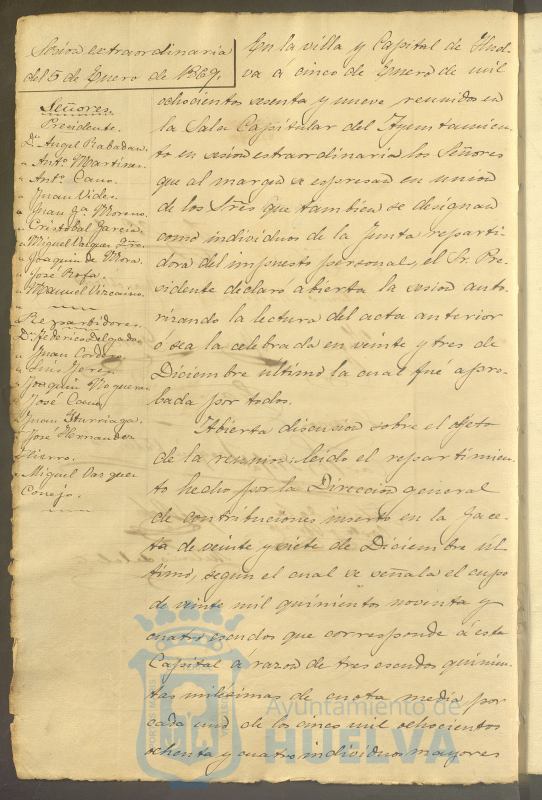 Sesion extraordinaria
del 5 de Enero de 1869,
Señores.
Presidente.
Dn. Angel Rabadan.
" Anto. Martinez.
" Anto. Cano.
" Juan Vides.
" Juan Ja. Moreno.
" Cristobal Garcia.
" Miguel Vazquez
" Joaquin de Mora.
" José Rofa.
" Manuel Vizcaino.
Repartidores.
Dn. Federico Delgado.
" Juan Cordero.
" Luis Jerez.
" Joaquin Noguera.
" José Cano.
" Juan Iturriaga.
" José Hernandez
Hierro.
" Miguel Vazquez
Conejo.
En la villa y Capital de Huel-
va á cinco de Enero de mil
ochocientos sesenta y nueve reunidos en
la Sala Capitular del Ayuntamien-
to en sesion estraordinaria los Señores
que al margen se espresan en union
de los Sres. que tambien se designan
como individuos de la Junta reparti-
dora del impuesto personal, el Sr. Pre-
sidente declaro abierta la sesion auto-
rizando la lectura del acta anterior
o sea la celebrada en veinte y tres de
Diciembre último la cual fué apro-
bada por todos.
Abierta discusion sobre el objeto
de la reunion; leido el repartimien-
to hecho por la Direccion general
de contribuciones inserto en la Gace-
ta de veinte y siete de Diciembre úl-
timo, segun el cual se señala el cupo
de veinte mil quinientos noventa y
cuatro escudos que corresponde á esta
Capital á razon de tres escudos quinien-
tas milésimas de cuota media por
cada uno de los cinco mil ochocientos
ochenta y cuatro individuos mayores
Ayuntamiento de
HUELVA